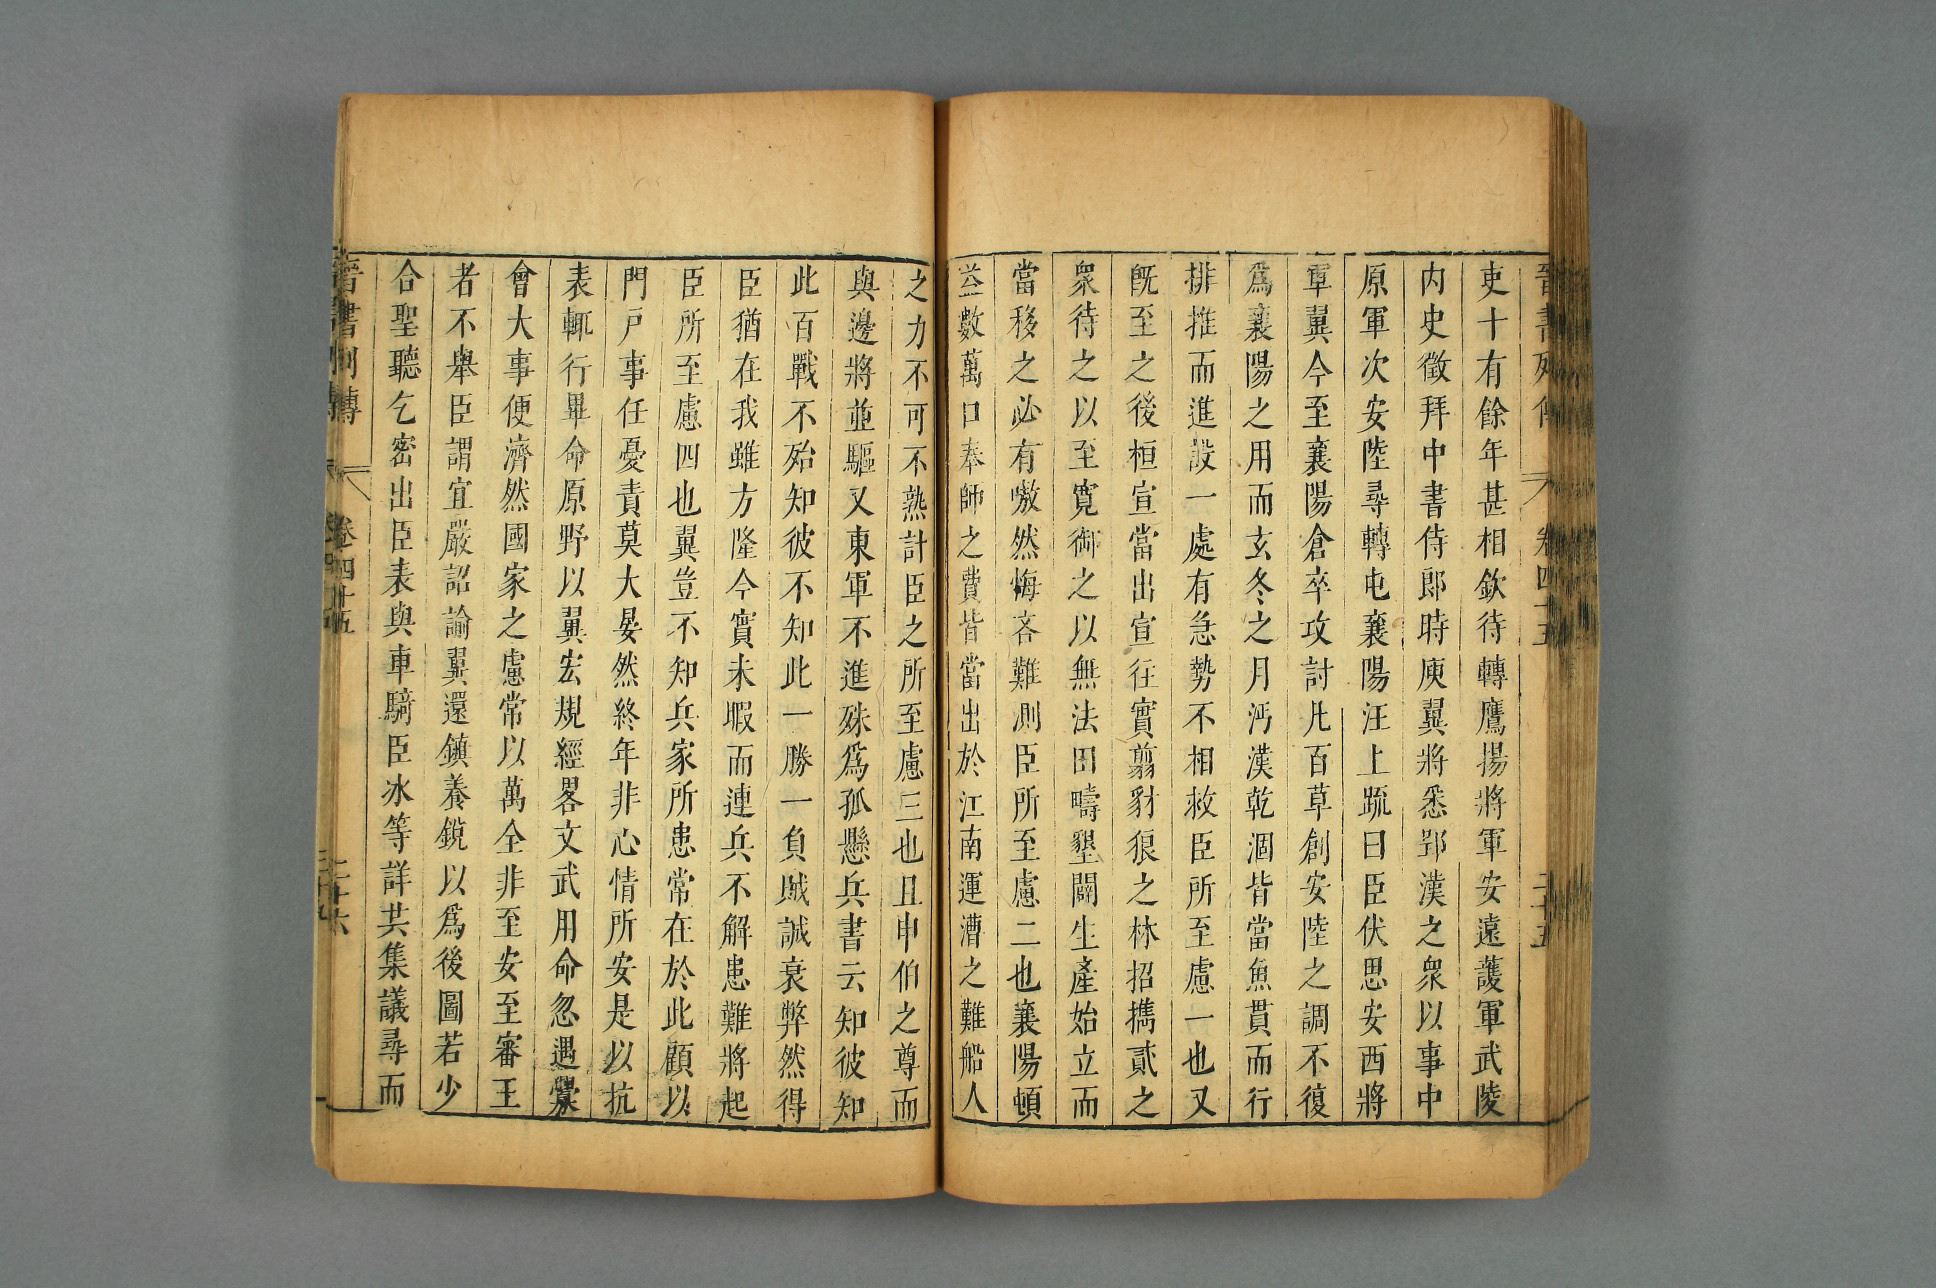 晉書列傳 卷四十五 二十五
吏十有餘年甚相欽待轉鷹揚將軍安遠護軍武陵
內史徵拜中書侍郎時庾翼將悉郢漢之衆以事中
原軍次安陸尋轉屯襄陽汪上䟽曰臣伏思安西將
軍翼今至襄陽倉卒攻討凡百草創安陸之調不復
爲襄陽之用而玄冬之月沔漢乾涸皆當魚貫而行
排推而進設一處有急勢不相救臣所至慮一也又
旣至之後桓宣當出宣往實翦豺狼之林招攜貳之
衆待之以至寛御之以無法田疇墾闢生產始立而
當移之必有嗷然悔吝難測臣所至慮二也襄陽頓
益數萬口奉師之費皆當出於江南運漕之難船人
之力不可不熟計臣之所至慮三也且申伯之尊而
與邊將並驅又東軍不進殊爲孤懸兵書云知彼知
此百戰不殆知彼不知此一勝一負賊誠衰弊然得
臣猶在我雖方隆今實未暇而連兵不解患難將起
臣所至慮四也翼豈不知兵家所患常在於此顧以
門戶事任憂責莫大晏然終年非心情所安是以抗
表輒行畢命原野以翼宏規經畧文武用命忽遇釁
會大事便濟然國家之慮常以萬全非至安至審王
者不舉臣謂宜嚴詔諭翼還鎮養銳以爲後圖若少
合聖聽乞密出臣表與車騎臣冰等詳共集議尋而
晉書列傳 卷四十五 二十六